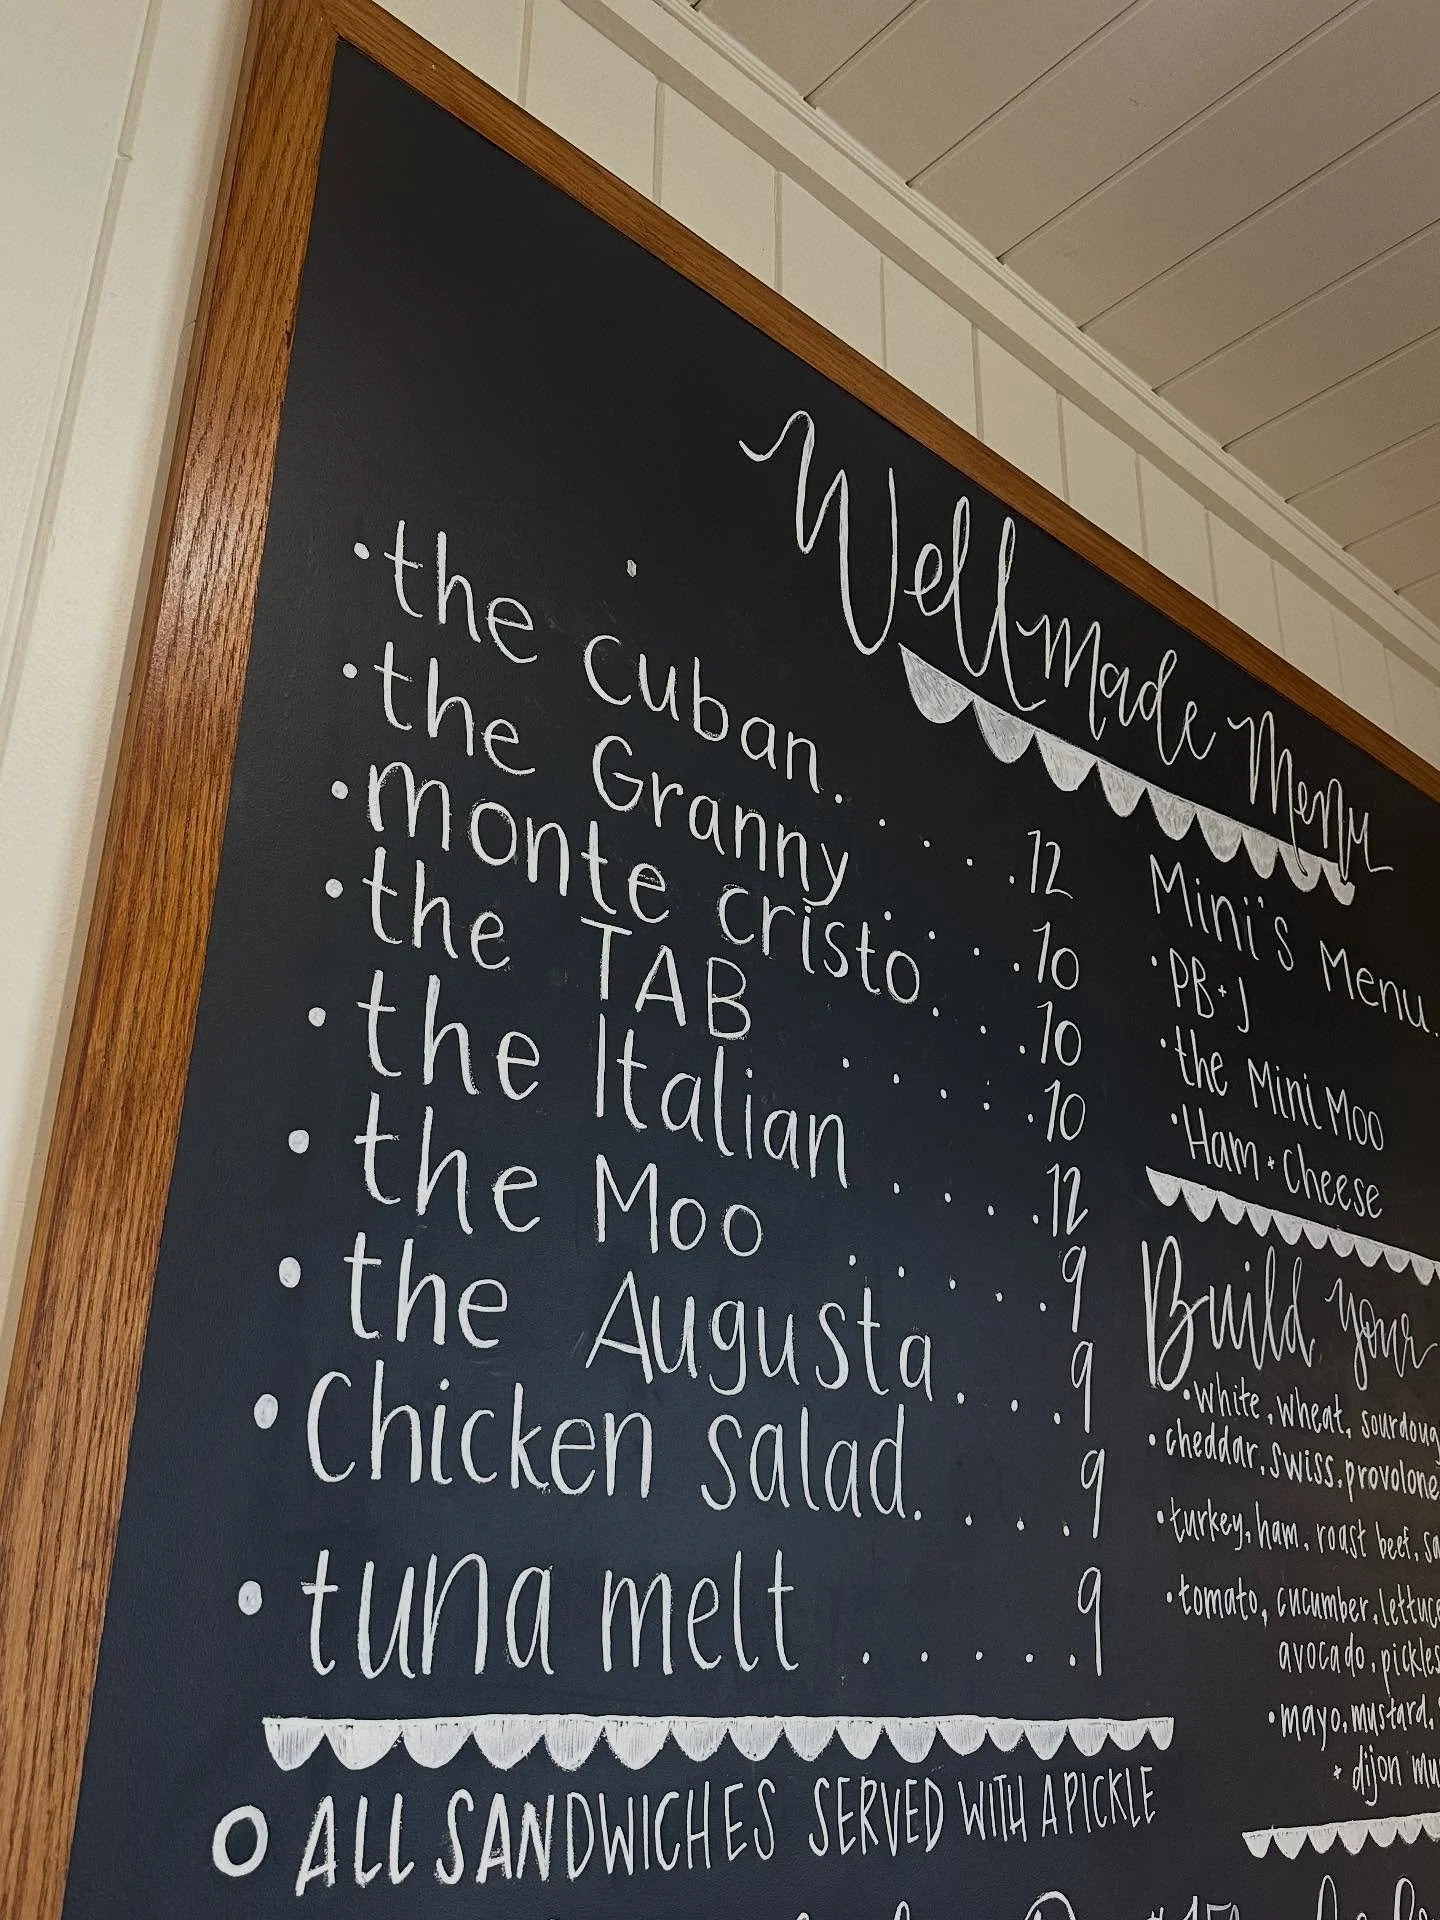 Wellmade Menu
• the Cuban. . . . . 12
• the Granny . . . . 10
• monte cristo. . . . 10
• the TAB . . . . . 10
• the Italian . . . . 12
• the Moo . . . . . 9
• the Augusta. . . . 9
• Chicken salad. . . . 9
• tuna melt . . . . . 9
O ALL SANDWICHES SERVED WITH A PICKLE
Mini's Menu.
• PB+J
• the Mini Moo
• Ham + Cheese
Build your
• white, wheat, sourdoug
• cheddar, swiss, provolone
• turkey, ham, roast beef, sa
• tomato, cucumber, lettuce
avocado, pickles
• mayo, mustard,
+ dijon mu